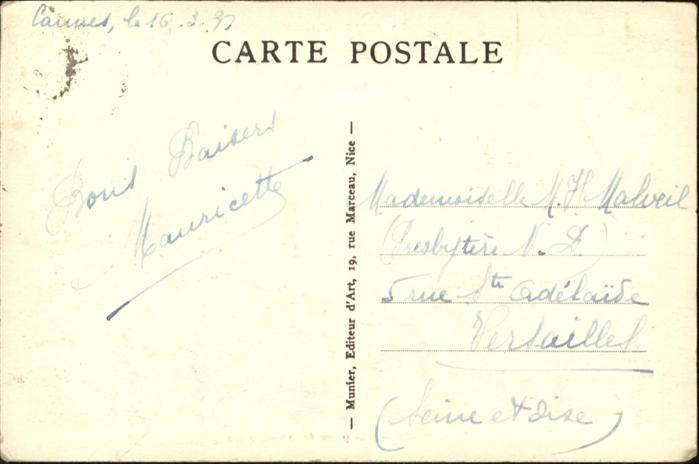 Cannes, le 16.3.
CARTE POSTALE
Bons Baisers
Mauricette
— Munier, Editeur d'Art, 19, rue Marceau, Nice —
Mademoiselle M. H Malveil
(Presbytère N. D.)
5 rue Ste Adélaïde
Versailles
(Seine et Oise)